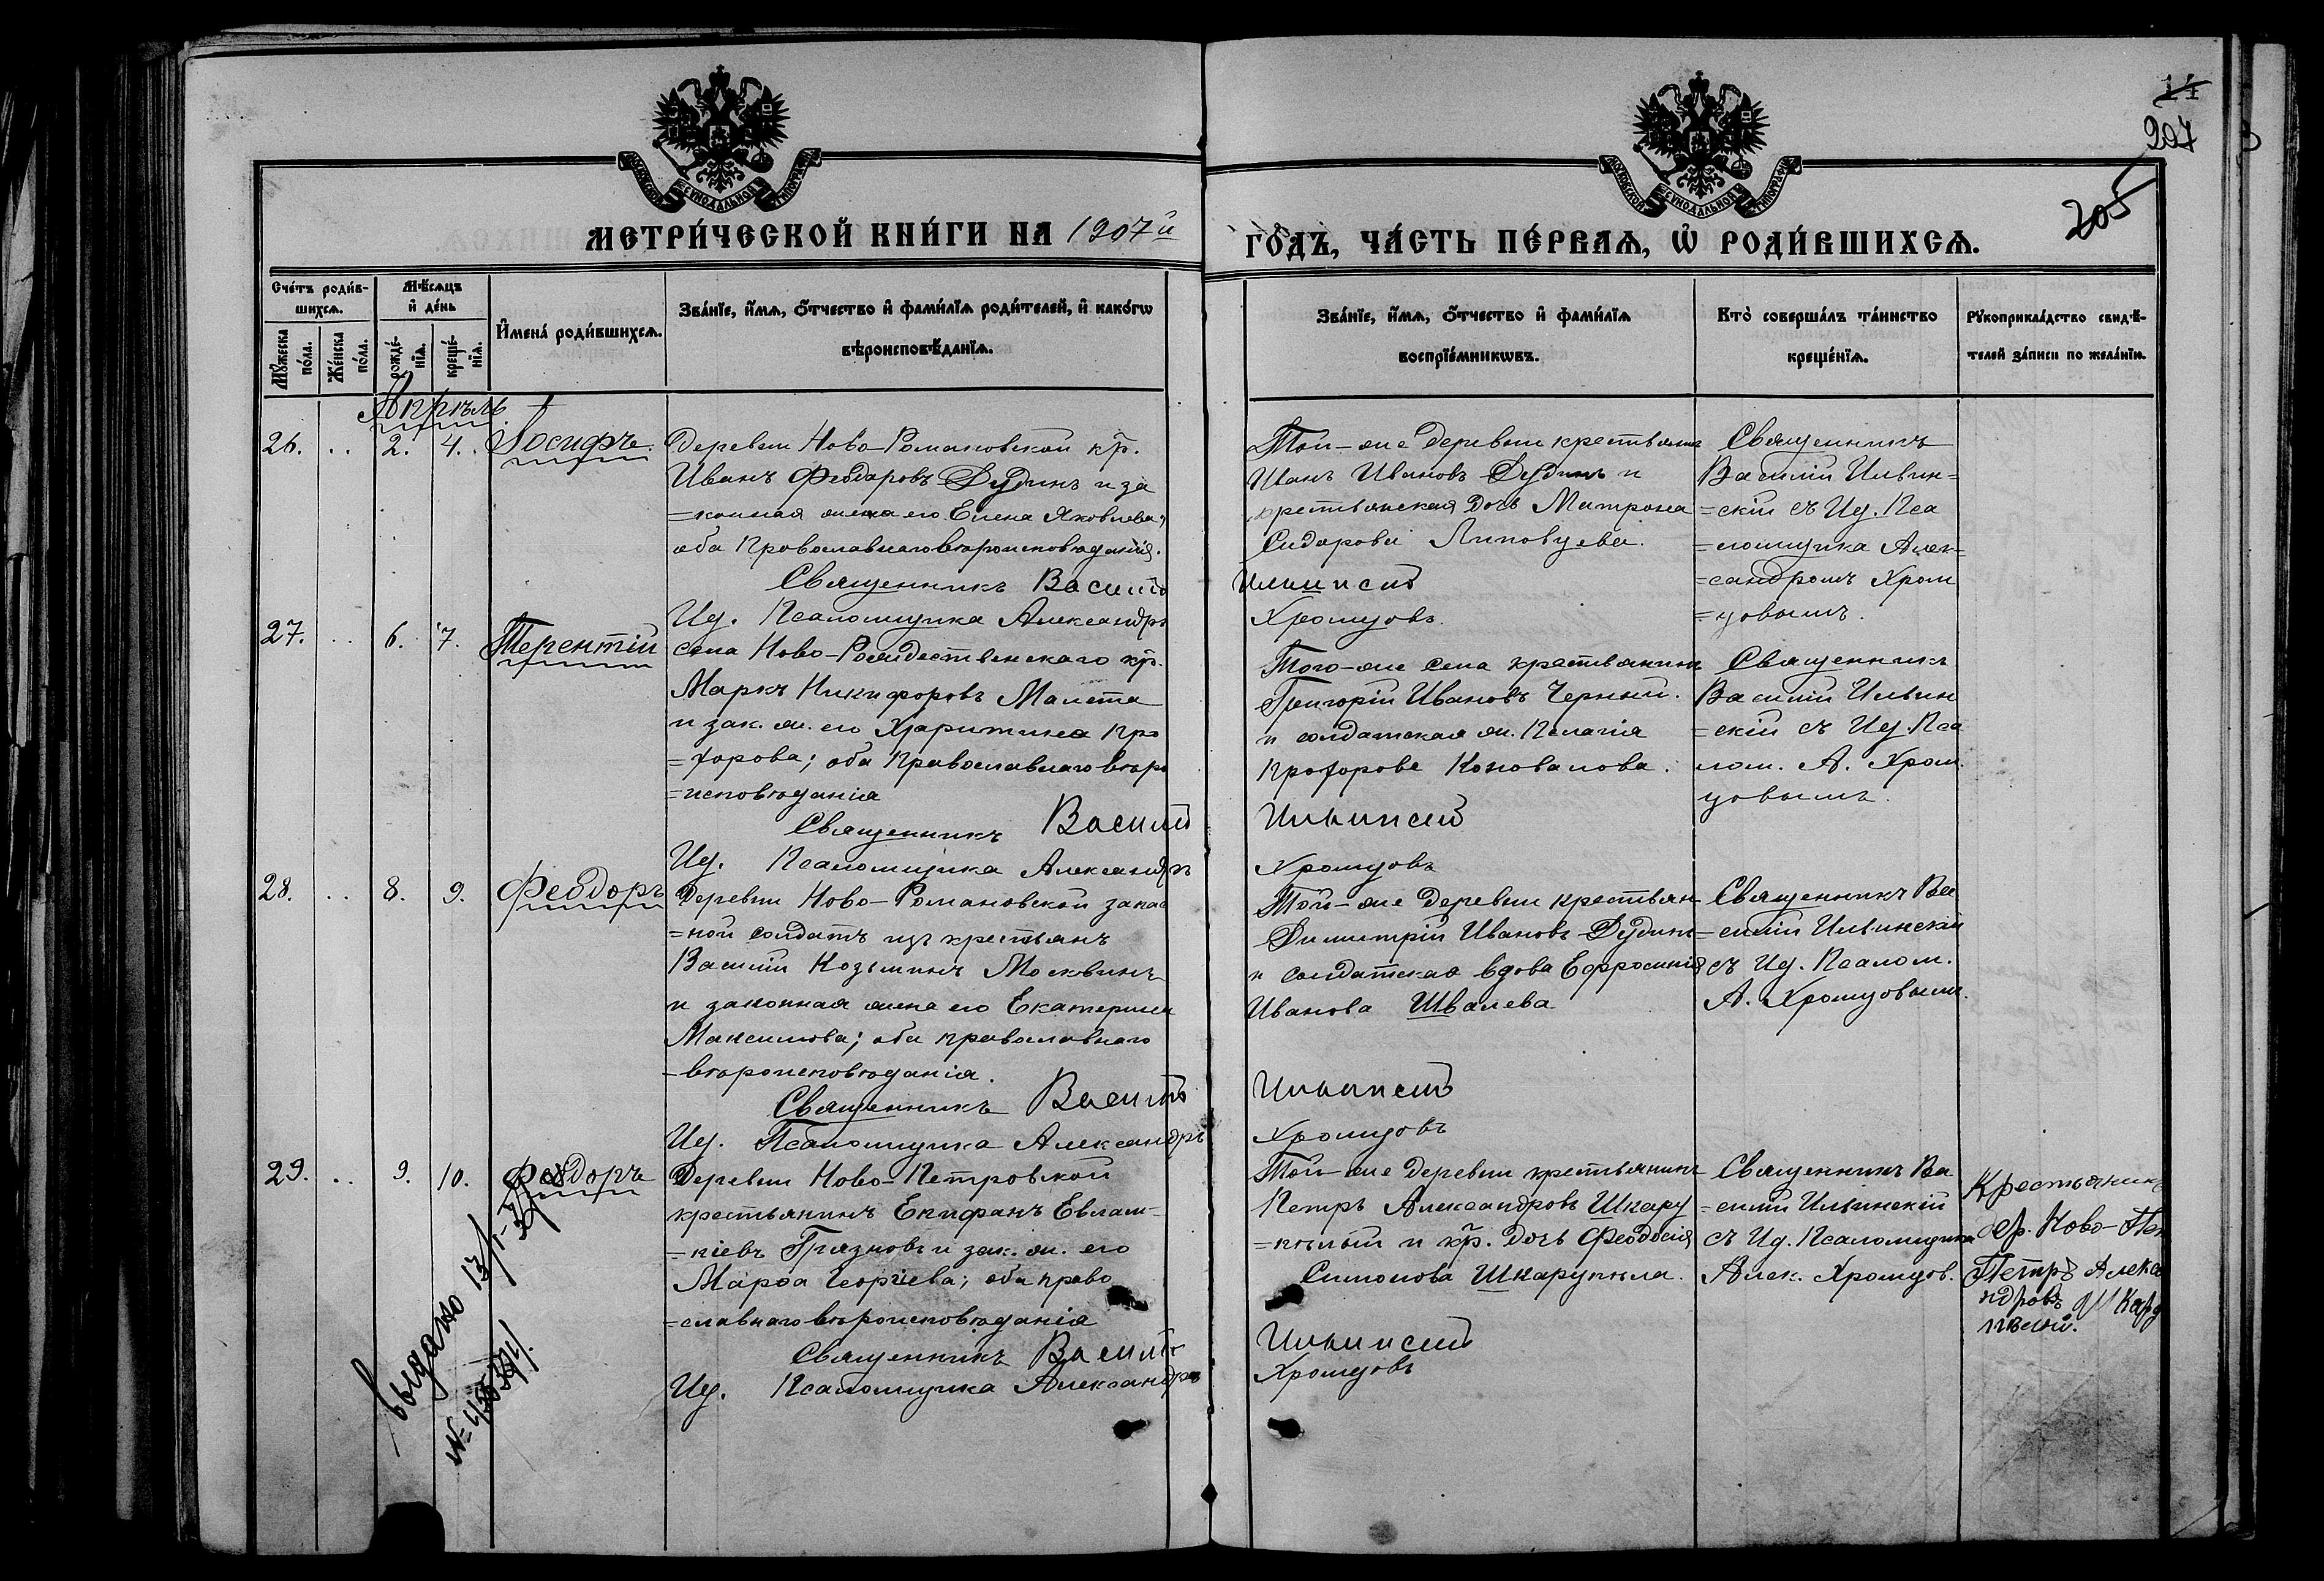 МОСКОВСКОЙ СѴНОДАЛЬНОЙ ТИПОГРАФІИ
МОСКОВСКОЙ СѴНОДАЛЬНОЙ ТИПОГРАФІИ
14
207
205
МЕТРИ́ЧЕСКОЙ КНИ́ГИ НА 1907й
ГО́ДЪ, ЧА́СТЬ ПЕ́РВАѦ, Ѡ҆ РОДИ́ВШИХСѦ.
Сче́тъ роди́в-
шихсѧ.
Мꙋ́жеска по́ла.
Же́нска по́ла.
Мѣ́сѧцъ
и҆ де́нь
рожде́-нїѧ.
креще́-нїѧ.
И҆мена̀ роди́вшихсѧ.
Зва́нїе, и҆́мѧ, ѻ҆́тчество и҆ фами́лїѧ роди́телей, и҆ како́гѡ
вѣроисповѣ́данїѧ.
Зва́нїе, и҆́мѧ, ѻ҆́тчество и҆ фами́лїѧ
воспрїе́мникѡвъ.
Кто̀ соверша́лъ та́инство
креще́нїѧ.
Рꙋкоприкла́дство свидѣ́-
телей за́писи по жела́нїю.
Апрѣль
26. .. 2. 4. Іосифъ.
Деревни Ново-Романовской кр.
Иванъ Феодоровъ Дудинъ и за
=конная жена его Елена Яковлева;
оба православнаго вѣроисповѣданія.
Священникъ Василій
Ид. Псаломщика Александръ
Той-же деревни крестьянинъ
Иванъ Ивановъ Дудинъ и
крестьянская дочь Матрона
Сидорова Липовцева.
Ильинскій
Хромцовъ.
Священникъ
Василій Ильин=
=скій съ Ид. Пса
=ломщика Алек=
=сандромъ Хром
=цовымъ.
27. .. 6. 7. Терентій
Села Ново-Рождественскаго кр.
Маркъ Никифоровъ Малета
и зак. ж. его Харитина Про
=хорова; оба православнаго вѣро
=исповѣданія
Священникъ Василій
Ид. Псаломщика Александръ
Того-же села крестьянинъ
Григорій Ивановъ Черный.
и солдатская ж. Пелагія
Прохорова Коновалова.
Ильинскій
Хромцовъ
Священникъ
Василій Ильин
=скій съ Ид. Пса
лом. А. Хром.
цовымъ.
28. .. 8. 9. Феодоръ
Деревни Ново-Романовской запас
=ной солдатъ изъ крестьянъ
Василій Козьминъ Москвинъ
и законная жена его Екатерина
Максимова; оба православнаго
=вѣроисповѣданія.
Священникъ Василій
Ид. Псаломщика Александръ
Той-же деревни крестьян
Димитрій Ивановъ Дудинъ
и солдатская вдова Ефросинія
Иванова Швалева
Ильинскій
Хромцовъ
Священникъ Ва
=силій Ильинскій
съ Ид. Псалом.
А. Хромцовымъ.
29. .. 9. 10. Феодоръ
Деревни Ново-Петровской
крестьянинъ Епифанъ Евлам-
=піевъ Грязновъ и зак. ж. его
Марѳа Георгіева; оба право
=славнаго вѣроисповѣданія
Священникъ Василій
Ид. Псаломщика Александръ
Той-же деревни крестьянинъ
Петръ Александровъ Шкару
=пѣлый и кр. дочь Феодосія
Симонова Шкарупѣла.
Ильинскій
Хромцовъ
Священникъ Ва
=силій Ильинскій
съ Ид. Псаломщика
Алек. Хромцов.
Крестьянинъ
др. Ново-Пет
Петръ Алекса
ндровъ Шкару
пѣлый.
выдано